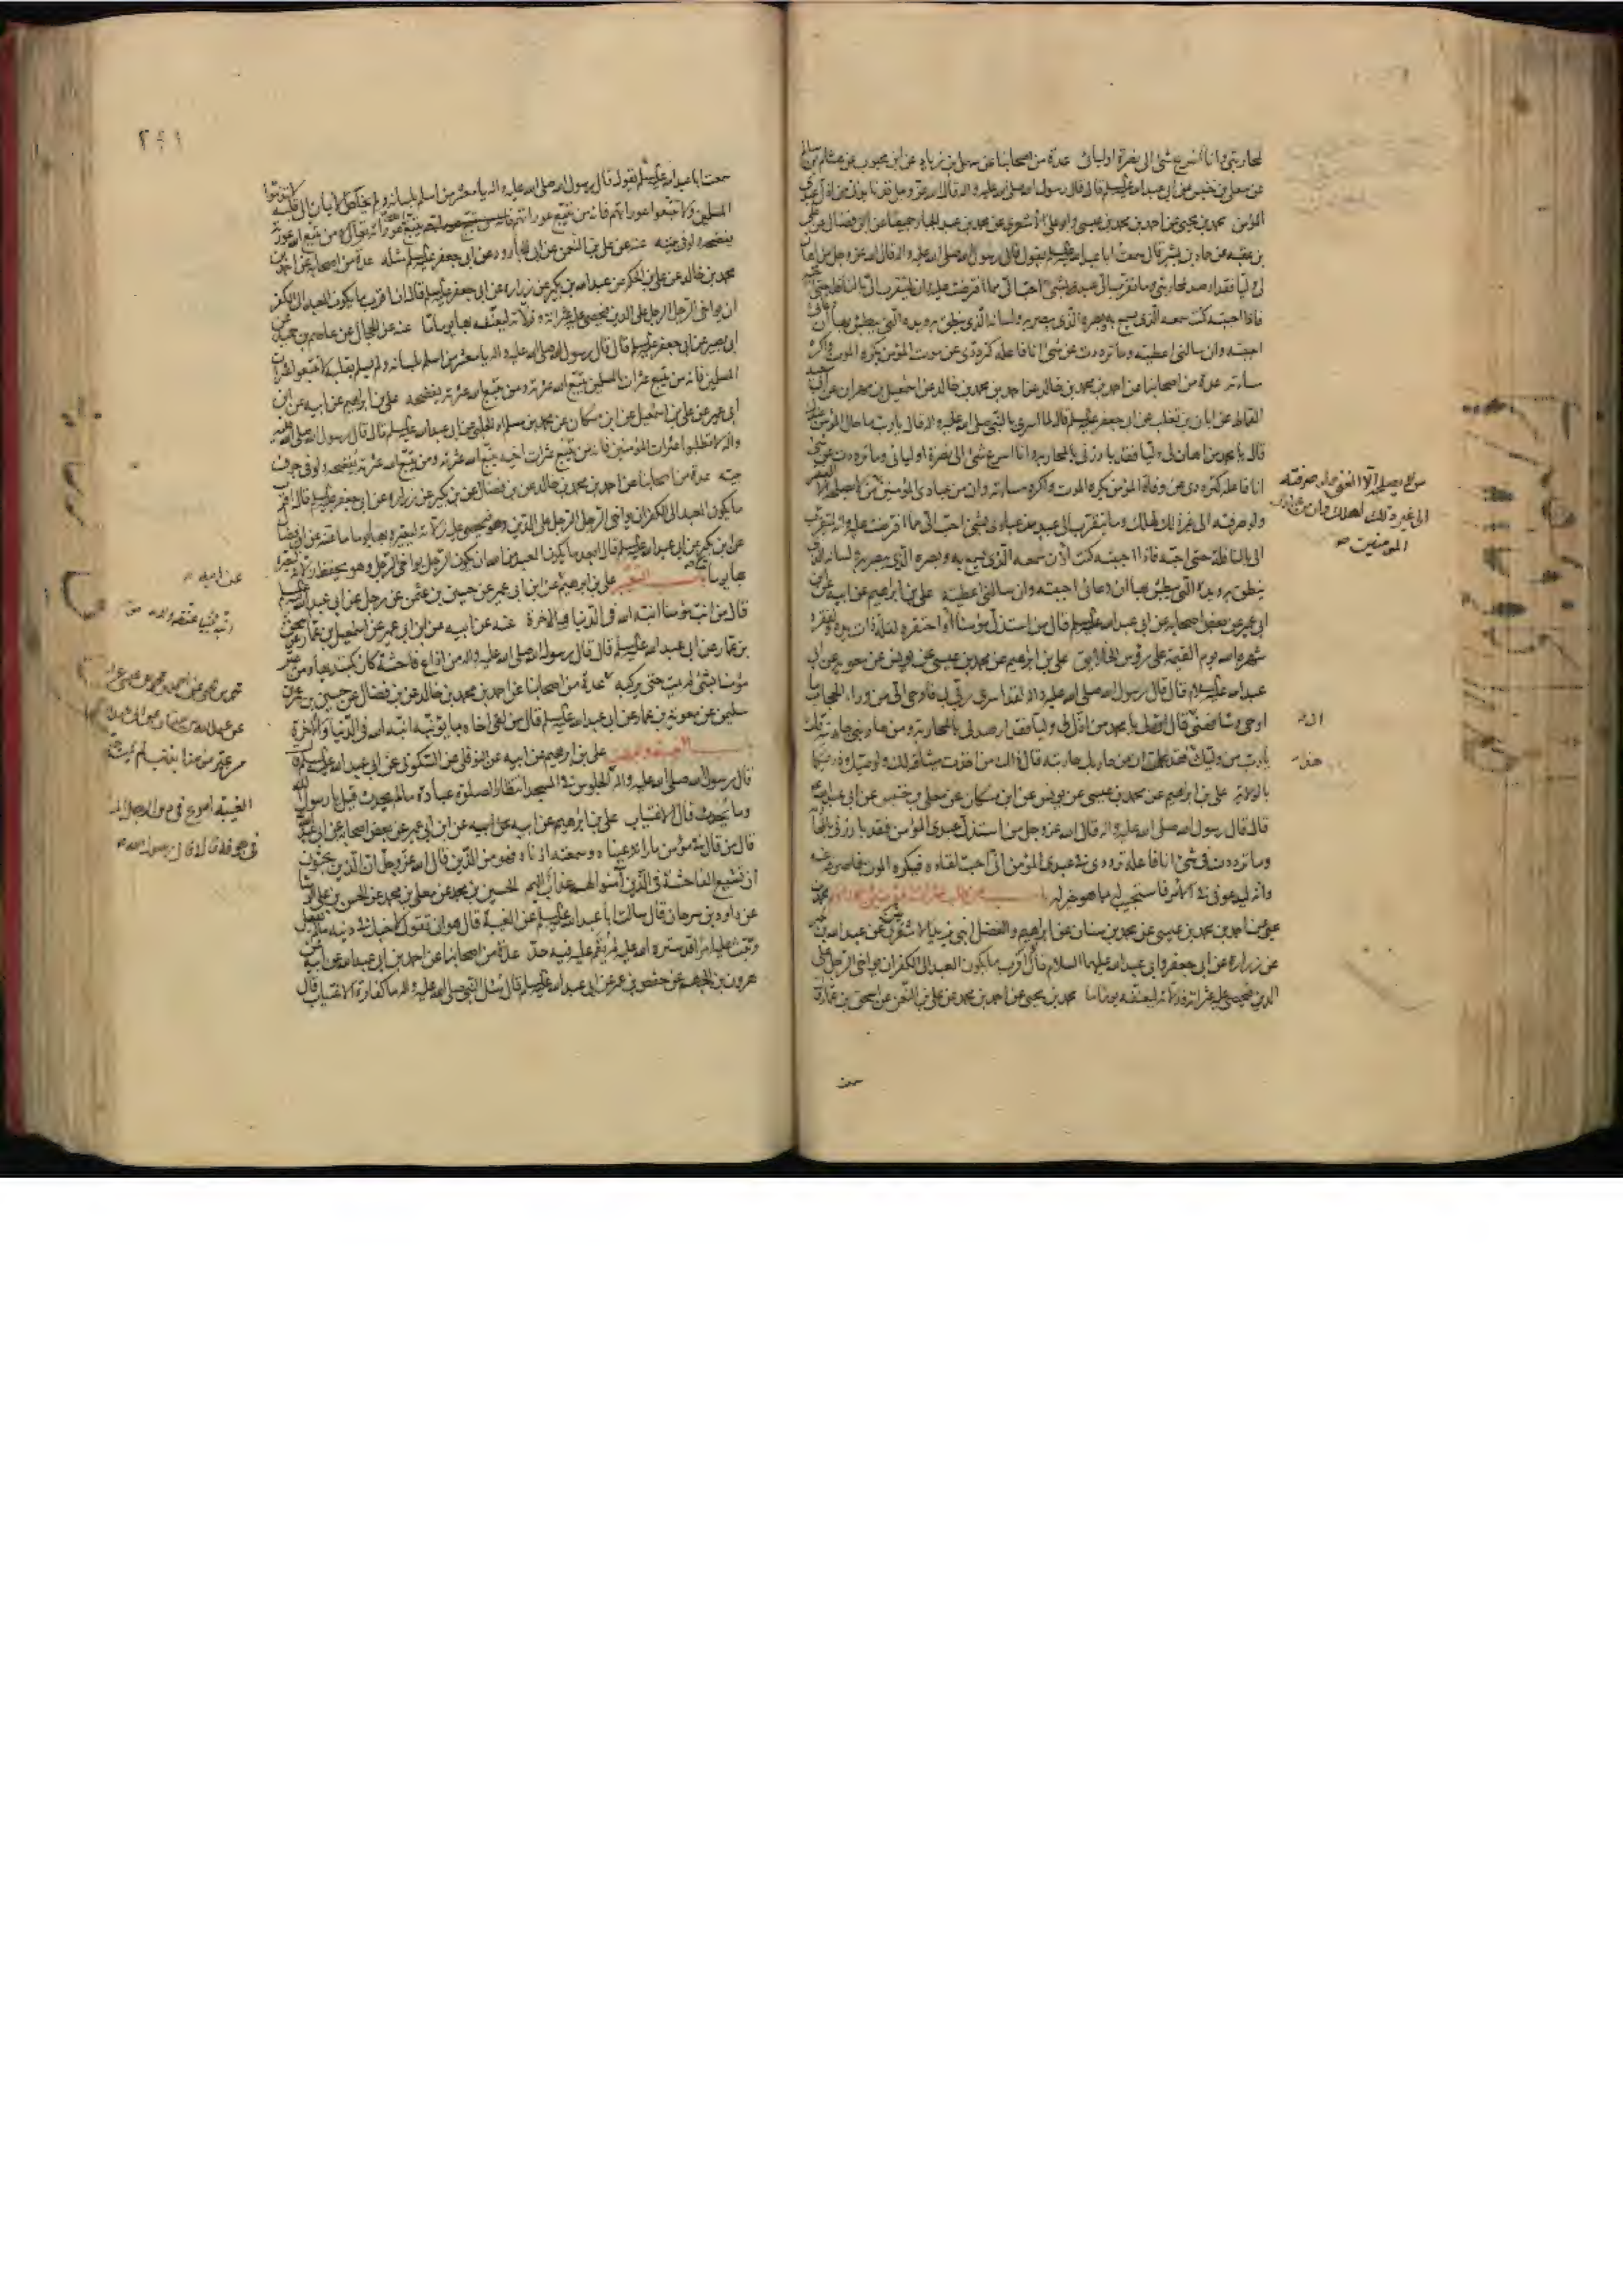 لمحاربتى وانا اسرع شئ الى نصرة اوليائى عدة من اصحابنا عن سهل بن زياد عن ابن محبوب عن هشام بن سالم
عن معلى بن خنيس عن ابى عبد الله عليه السلام قال قال رسول الله صلى الله عليه واله قال الله عز وجل قد نابذنى من اذل عبدى
المؤمن محمد بن يحيى عن احمد بن محمد بن عيسى وابو على الاشعرى عن محمد بن عبد الجبار جميعا عن ابن فضال عن على
بن عقبه عن حماد بن بشير قال سمعت ابا عبد الله عليه السلام يقول قال رسول الله صلى الله عليه واله قال الله عز وجل من اهان
لى وليا فقد ارصد لمحاربتى وما تقرب الى عبد بشئ احب الى مما افترضت عليه وانه ليتقرب الى بالنافلة حتى احبه
فاذا احببته كنت سمعه الذى يسمع به وبصره الذى يبصر به ولسانه الذى ينطق به ويده التى يبطش بها ان دعانى
اجبته وان سالنى اعطيته وما ترددت عن شئ انا فاعله كترددى عن موت المؤمن يكره الموت واكره
مساءته عدة من اصحابنا عن احمد بن محمد بن خالد عن اسمعيل بن مهران عن ابى سعيد
القماط عن ابان بن تغلب عن ابى جعفر عليه السلام قال لما اسرى بالنبى صلى الله عليه واله قال يا رب ما حال المؤمن عندك
قال يا محمد من اهان لى وليا فقد بارزنى بالمحاربة وانا اسرع شئ الى نصرة اوليائى وما ترددت عن شئ
انا فاعله كترددى عن وفاة المؤمن يكره الموت واكره مساءته وان من عبادى المؤمنين من لا يصلحه الا الفقر
ولو صرفته الى غير ذلك لهلك وما يتقرب الى عبد من عبادى بشئ احب الى مما افترضت عليه وانه ليتقرب
الى بالنافلة حتى احبه فاذا احببته كنت اذن سمعه الذى يسمع به وبصره الذى يبصر به ولسانه الذى
ينطق به ويده التى يبطش بها ان دعانى اجبته وان سالنى اعطيته على بن ابراهيم عن ابيه عن ابن
ابى عمير عن بعض اصحابه عن ابى عبد الله عليه السلام قال من استذل مؤمنا او احتقره لقلة ذات يده ولفقره
شهره الله يوم القيمة على رؤس الخلايق على بن ابراهيم عن محمد بن عيسى عن يونس عن معوية عن ابى
عبد الله عليه السلام قال قال رسول الله صلى الله عليه واله لقد اسرى ربى بى فاوحى الى من وراء الحجاب ما
اوحى وشافهنى قال لى يا محمد من اذل لى وليا فقد ارصد لى بالمحاربة ومن حاربنى حاربته قلت
يا رب من وليك فقد علمت ان من حاربك حاربته قال ذاك من اخذت ميثاقه لك ولوصيك وذريتكما
بالولاية على بن ابراهيم عن محمد بن عيسى عن يونس عن ابن مسكان عن معلى بن خنيس عن ابى عبد الله
قال قال رسول الله صلى الله عليه واله قال الله عز وجل من استذل عبدى المؤمن فقد بارزنى بالمحاربة
وما ترددت فى شئ انا فاعله ترددى فى عبدى المؤمن انى احب لقاءه فيكره الموت فاصرفه عنه
وانه ليدعونى فى الامر فاستجيب له بما هو خير له باب من طلب عثرات المؤمنين وعوراتهم محمد بن
يحيى عن احمد بن محمد بن عيسى عن محمد بن سنان عن ابراهيم والفضل ابنى يزيد الاشعرى عن عبد الله بن بكير
عن زرارة عن ابى جعفر وابى عبد الله عليهما السلام قالا اقرب ما يكون العبد الى الكفر ان يواخى الرجل على
الدين فيحصى عليه عثراته وزلاته ليعنفه بها يوما ما محمد بن يحيى عن احمد بن محمد عن على بن النعمن عن اسحق بن عمار قال
سمعت
من لا يصلحه الا الغنى ولو صرفته
الى غير ذلك لهلك وان من عبادى
المؤمنين
سمعت ابا عبد الله عليه السلام يقول قال رسول الله صلى الله عليه واله يا معشر من اسلم بلسانه ولم يخلص الايمان الى قلبه لا تذموا
المسلمين ولا تتبعوا عوراتهم فانه من تتبع عوراتهم تتبع الله عورته ومن تتبع الله عورته
يفضحه ولو فى بيته عنه عن على بن النعمن عن ابى الجارود عن ابى جعفر عليه السلام مثله عدة من اصحابنا عن احمد بن
محمد بن خالد عن على بن الحكم عن عبد الله بن بكير عن زرارة عن ابى جعفر عليه السلام قال ان اقرب ما يكون العبد الى الكفر
ان يواخى الرجل الرجل على الدين فيحصى عليه عثراته وزلاته ليعنفه بها يوما ما عنه عن الحجال عن عاصم بن حميد عن
ابى بصير عن ابى جعفر عليه السلام قال قال رسول الله صلى الله عليه واله يا معشر من اسلم بلسانه ولم يسلم بقلبه لا تتبعوا عثرات
المسلمين فانه من تتبع عثرات المسلمين تتبع الله عثرته ومن تتبع الله عثرته يفضحه على بن ابراهيم عن ابيه عن ابن
ابى عمير عن على بن اسمعيل عن ابن مسكان عن محمد بن مسلم او الحلبى عن ابى عبد الله عليه السلام قال قال رسول الله صلى الله عليه
واله لا تطلبوا عثرات المؤمنين فانه من تتبع عثرات اخيه تتبع الله عثرته ومن تتبع الله عثرته يفضحه ولو فى جوف
بيته عدة من اصحابنا عن احمد بن محمد بن خالد عن ابن فضال عن ابن بكير عن زرارة عن ابى جعفر عليه السلام قال اقرب
ما يكون العبد الى الكفر ان يواخى الرجل الرجل على الدين فيحصى عليه زلاته ليعيره بها يوما ما عنه عن ابن فضال
عن ابن بكير عن ابى عبد الله عليه السلام قال ابعد ما يكون العبد من الله ان يكون الرجل يواخى الرجل وهو يحفظ زلاته ليعيره
بها يوما ما باب التعيير على بن ابراهيم عن ابن ابى عمير عن حسين بن عثمن عن رجل عن ابى عبد الله عليه السلام
قال من انب مؤمنا انبه الله فى الدنيا والاخرة عنه عن ابيه عن ابن ابى عمير عن اسمعيل بن عمار عن اسحق
بن عمار عن ابى عبد الله عليه السلام قال قال رسول الله صلى الله عليه واله من اذاع فاحشة كان كمبتدئها ومن عير
مؤمنا بشئ لم يمت حتى يركبه عدة من اصحابنا عن احمد بن محمد بن خالد عن ابن فضال عن حسين بن عمر بن
سليمن عن معوية بن عمار عن ابى عبد الله عليه السلام قال من لقى اخاه بما يؤنبه انبه الله فى الدنيا والاخرة
باب الغيبة والبهت على بن ابراهيم عن ابيه عن النوفلى عن السكونى عن ابى عبد الله عليه السلام قال
قال رسول الله صلى الله عليه واله الجلوس فى المسجد انتظار الصلوة عبادة ما لم يحدث قيل يا رسول الله
وما يحدث قال الاغتياب على بن ابراهيم عن ابيه عن ابن ابى عمير عن بعض اصحابه عن ابى عبد الله
قال من قال فى مؤمن ما راته عيناه وسمعته اذناه فهو من الذين قال الله عز وجل ان الذين يحبون
ان تشيع الفاحشة فى الذين آمنوا لهم عذاب اليم الحسين بن محمد عن معلى بن محمد عن الحسن بن على الوشا
عن داود بن سرحان قال سالت ابا عبد الله عليه السلام عن الغيبة قال هو ان تقول لاخيك فى دينه ما لم يفعل
وتبث عليه امرا قد ستره الله عليه لم يقم عليه فيه حد عدة من اصحابنا عن احمد بن ابى عبد الله عن ابيه عن
هرون بن الجهم عن حفص بن عمر عن ابى عبد الله عليه السلام قال سئل النبى صلى الله عليه واله ما كفارة الاغتياب قال
عن ابيه
محمد بن يحيى عن احمد بن محمد بن عيسى عن
الغيبة اسرع فى دين الرجل المسلم
فى جوفه قال وقال رسول الله